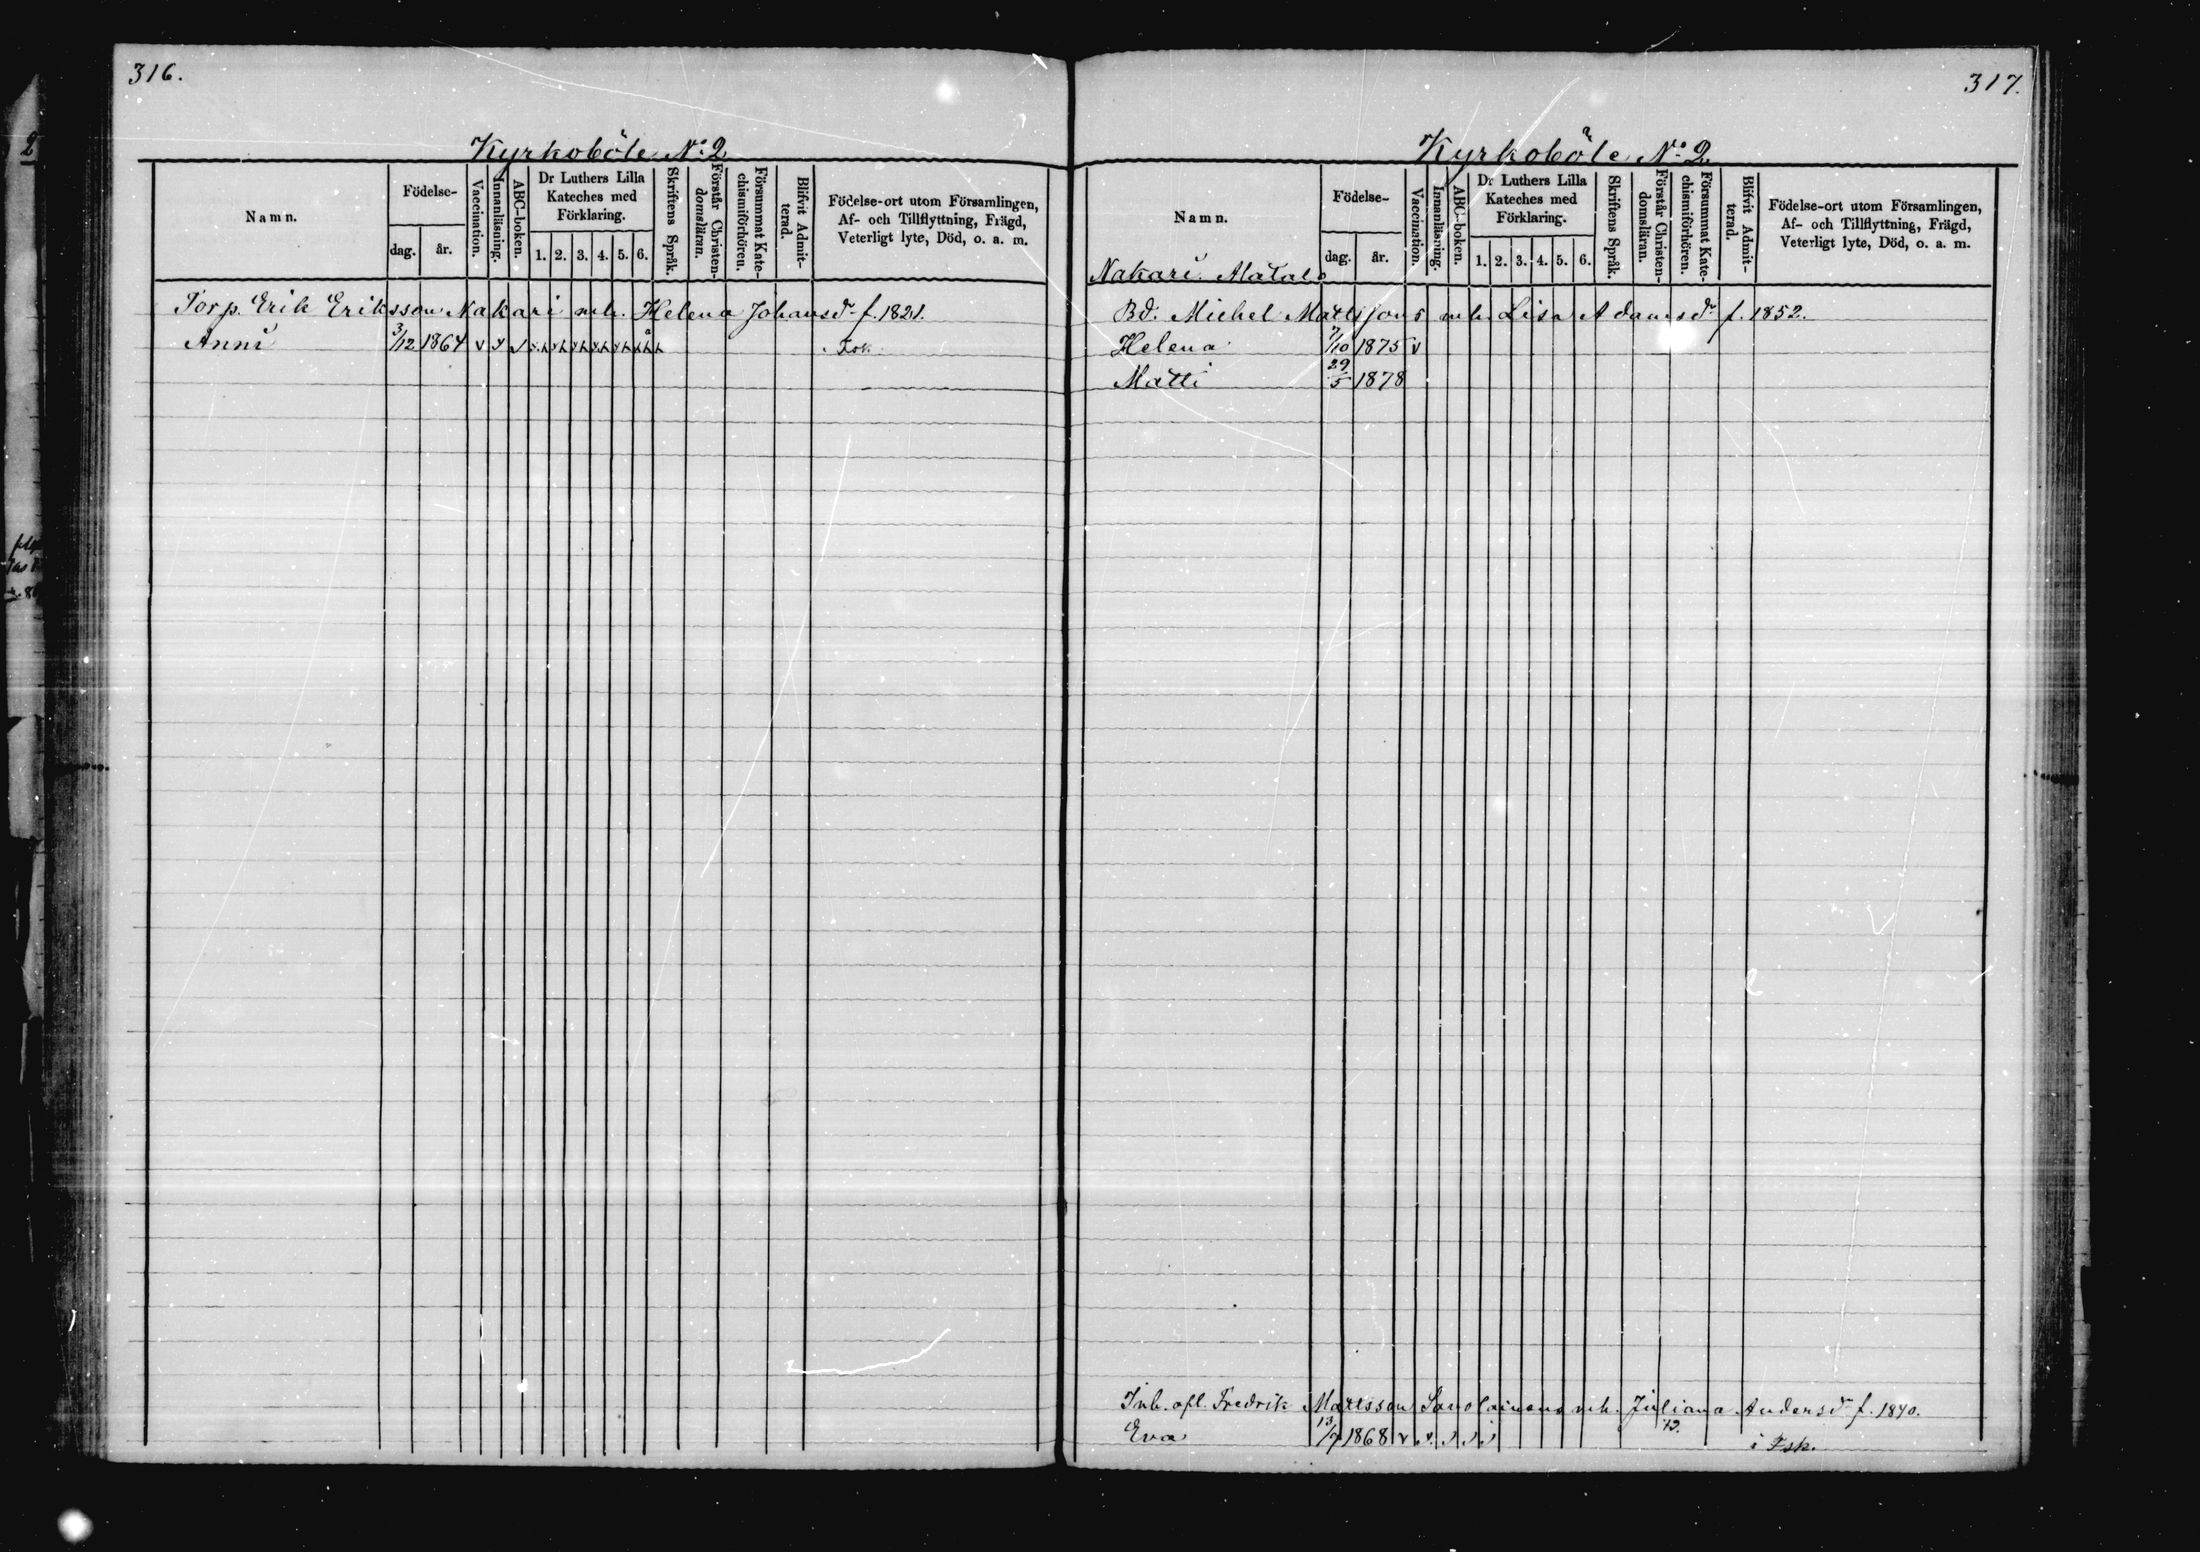 316.
Kyrkoböle No 2
Namn.
Födelse-
dag.
år.
Vaccination.
Innanläsning.
ABC-boken.
Dr Luthers Lilla
Kateches med
Förklaring.
1. 2. 3. 4. 5. 6.
Skriftens Språk.
Förstår Christen-
domsläran.
Försummat Kate-
chismiförhören.
Blifvit Admit-
terad.
Födelse-ort utom Församlingen,
Af- och Tillflyttning, Frägd,
Veterligt lyte, Död, o. a. m.
Torp. Erik Eriksson Nakari m.h. Helena Johansdr f. 1821.
Anni 3/12 1864
317.
Kyrkoböle No 2
Namn.
Födelse-
dag.
år.
Vaccination.
Innanläsning.
ABC-boken.
Dr Luthers Lilla
Kateches med
Förklaring.
1. 2. 3. 4. 5. 6.
Skriftens Språk.
Förstår Christen-
domsläran.
Försummat Kate-
chismiförhören.
Blifvit Admit-
terad.
Födelse-ort utom Församlingen,
Af- och Tillflyttning, Frägd,
Veterligt lyte, Död, o. a. m.
Nakari Matala
Bd. Michel Mattssons m.h. Lisa Adamsdr f. 1852.
Helena 7/10 1875 v
Matti 29/5 1878
Inh. afl. Fredrik Mattsson Savolainens m.h. Juliana Andersdr f. 1840.
Eva 13/7 1868 v
i Fsk.